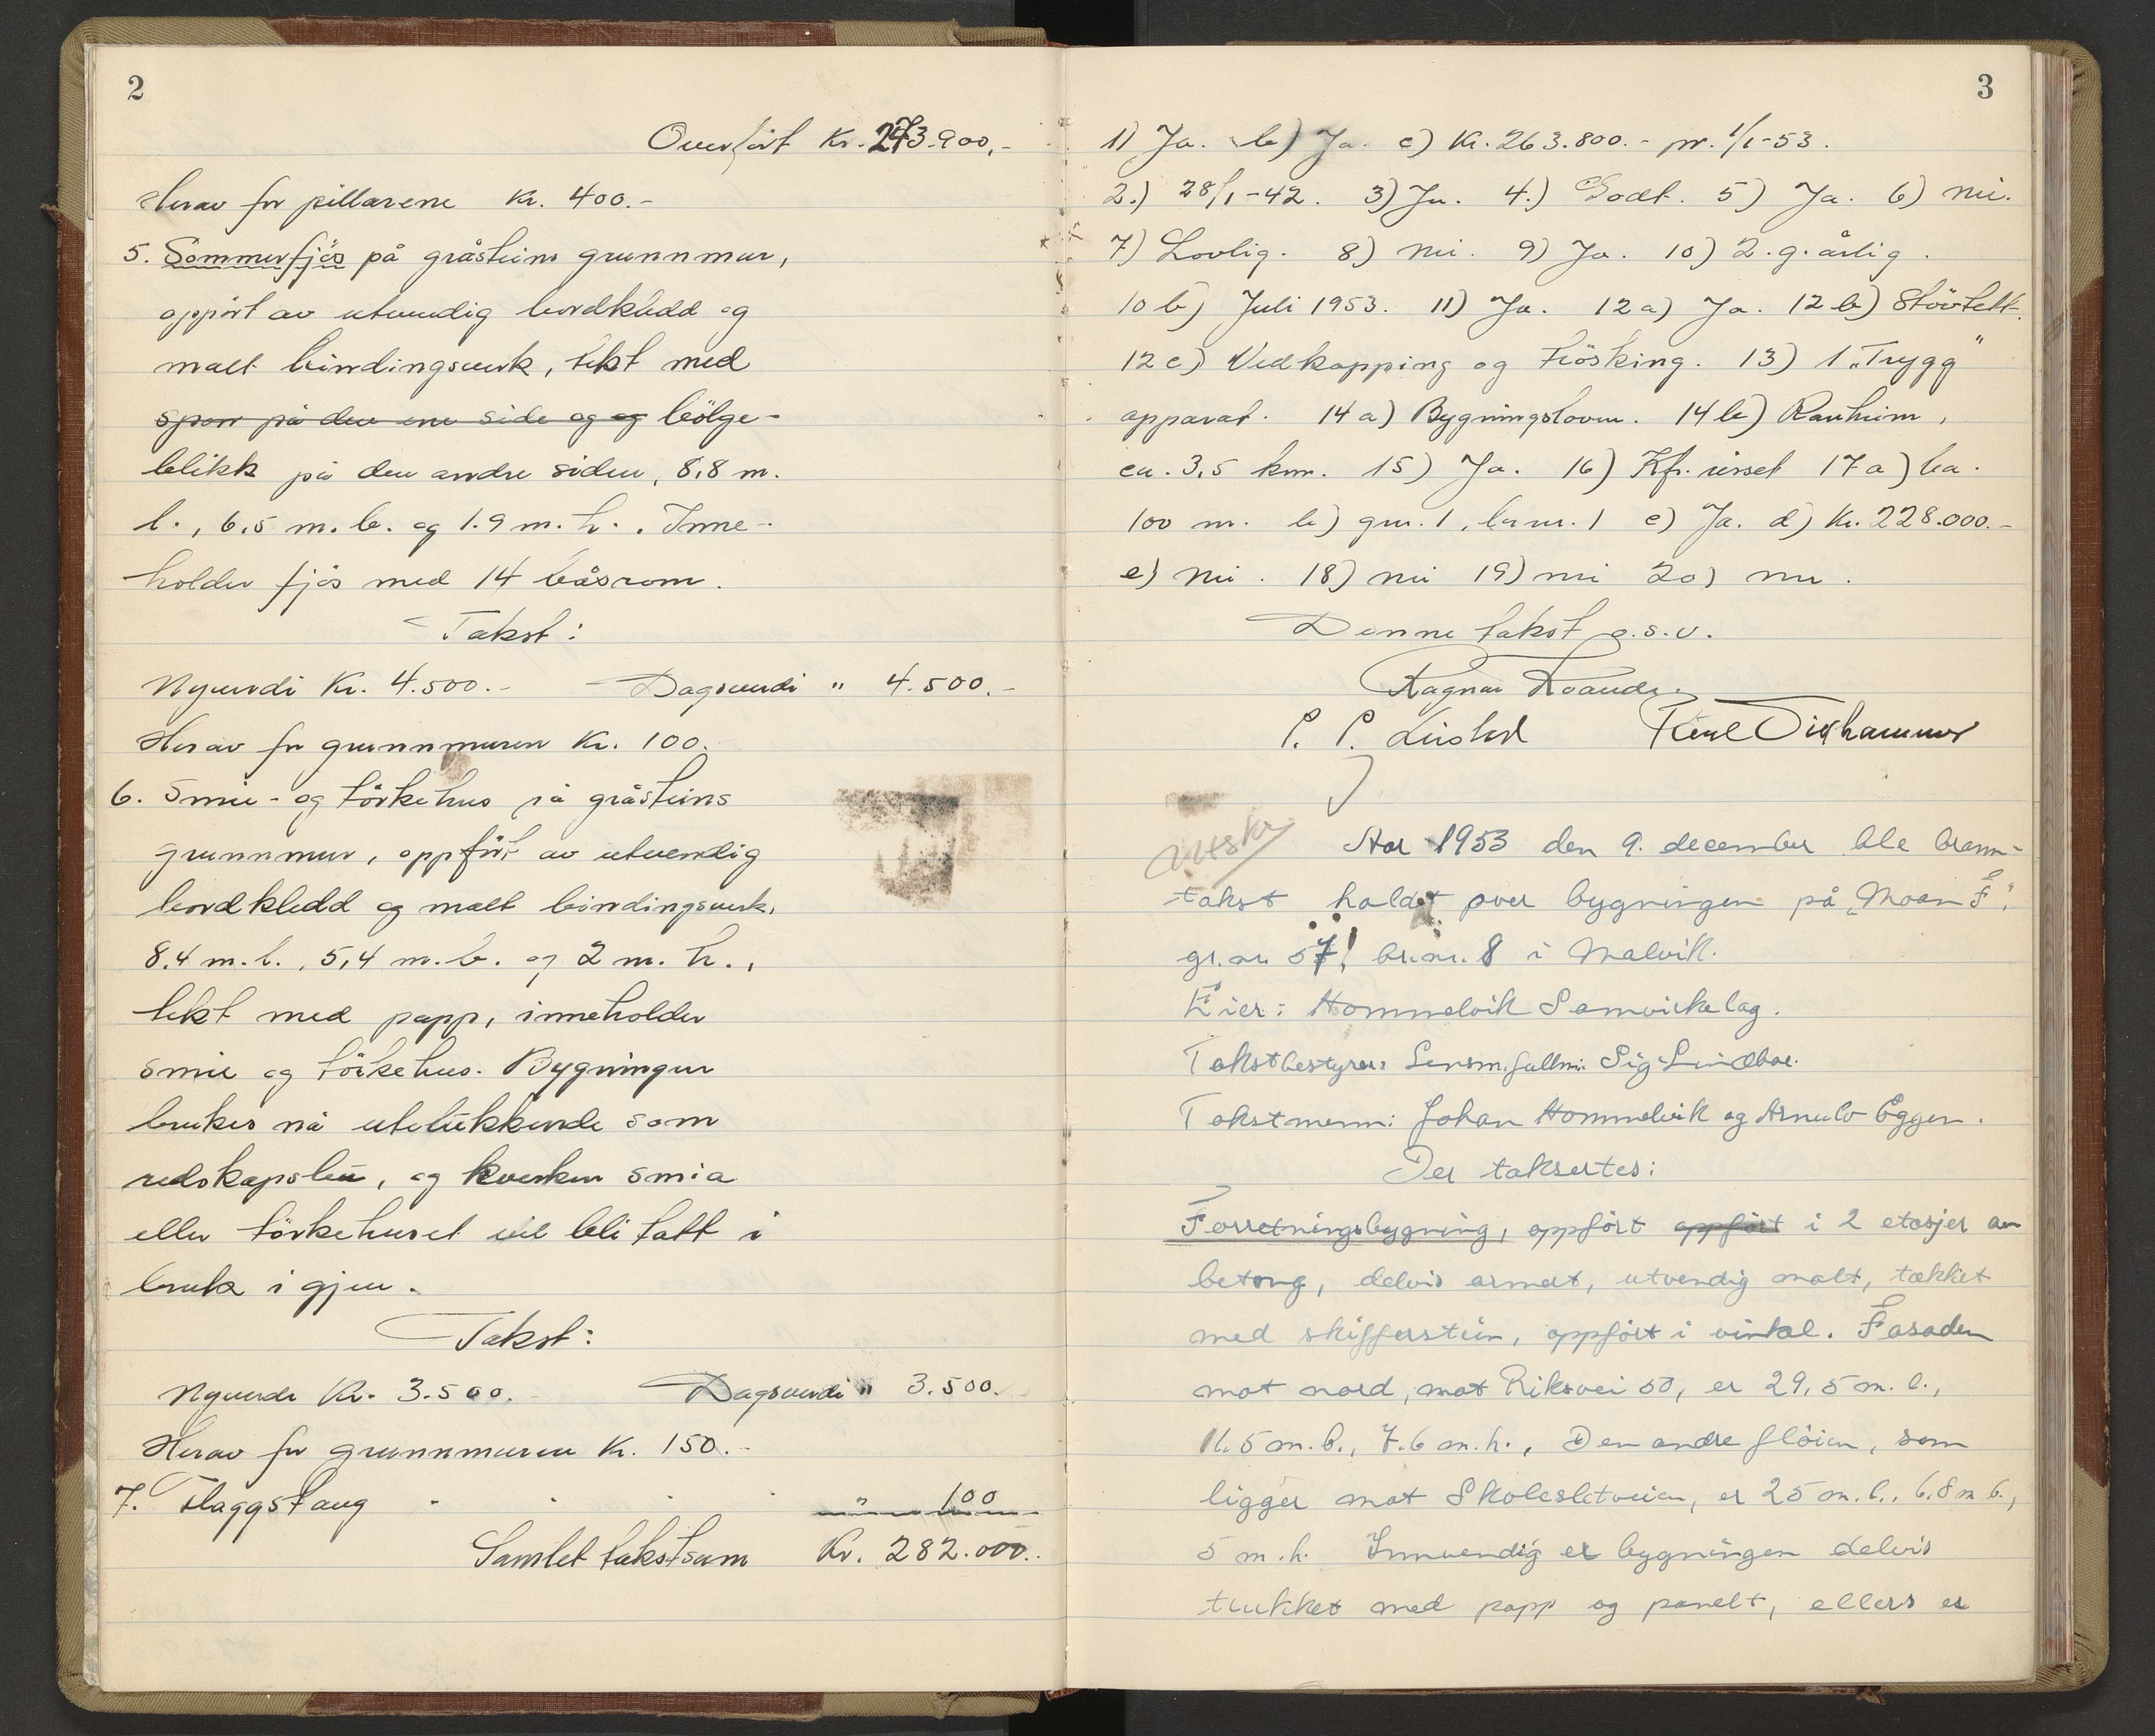 2
Overført Kr. 273.900,-
Herav for pillarene Kr. 400.-
5. Sommerfjös på gråsteins grunnmur,
oppört av utvendig bordkledd og
malt bindingsverk, tekt med
spon på den ene side og og bölge-
blikk på den andre siden, 8,8 m.
l., 6,5 m. b. og 1.9 m. h.. Inne-
holder fjös med 14 båsrom.
Takst:
Nyverdi Kr. 4.500.- Dagsverdi " 4.500.-
Herav for grunnmuren Kr. 100.
6. Smie- og törkehus på gråsteins
grunnmur, oppfört av utvendig
bordkledd og malt bindingsverk,
8,4 m. l., 5,4 m. b. og 2 m. h.,
tekt med papp, inneholder
smie og törkehus. Bygningen
brukes nå utelukkende som
redskapsbu, og hverken smia
eller törkehuset vil bli tatt i
bruk i gjen.
Takst:
Nyverdi Kr. 3.500. Dagsverdi " 3.500.
Herav for grunnmuren Kr. 150.-
7. Flaggstang . . . . " 100
Samlet takstsum Kr. 282.000..
3
1) Ja. b) Ja. c) Kr. 263.800.- pr. 1/1-53.
2.) 28/1-42. 3) Ja. 4.) Godt. 5) Ja. 6) Nei.
7) Lovlig. 8) Nei. 9) Ja. 10) 2. g. årlig.
10 b) Juli 1953. 11) Ja. 12 a) Ja. 12 b) Stövtett.
12 c) Vedkapping og trösking. 13) 1 „Trygg"
apparat. 14 a) Bygningsloven. 14 b) Ranheim,
ca. 3,5 km. 15) Ja. 16) Kfr. risset 17 a) ca.
100 m. b) gnr. 1, brnr. 1 c) Ja. d) Kr. 228.000.-
e) Nei. 18) nei 19) nei 20) nei.
Denne takst o.s.v.
Ragnar
P. P.
Utskr.
Aar 1953 den 9. december ble brann-
takst holdt over bygningen på „Moan F".
gr.nr. 57, br.nr. 8 i Malvik.
Eier: Hommelvik Samvirkelag.
Takstbestyrer: Lensm.fullm. Sig. Lindboe.
Takstmenn: Johan Hommelvik og Arnulv Eggen.
Der taksertes:
Forretningsbygning, oppfört oppfört i 2 etasjer av
betong, delvis armert, utvendig malt, tækket
med skifferstein, oppfört i vinkel. Fasaden
mot nord, mot Riksvei 50, er 29,5 m. l.,
11.5 m. b., 7.6 m. h., Den andre flöien, som
ligger mot Skolesletveien, er 25 m. l., 6,8 m b.,
5 m. h. Innvendig er bygningen delvis
trukket med papp og panelt, ellers er